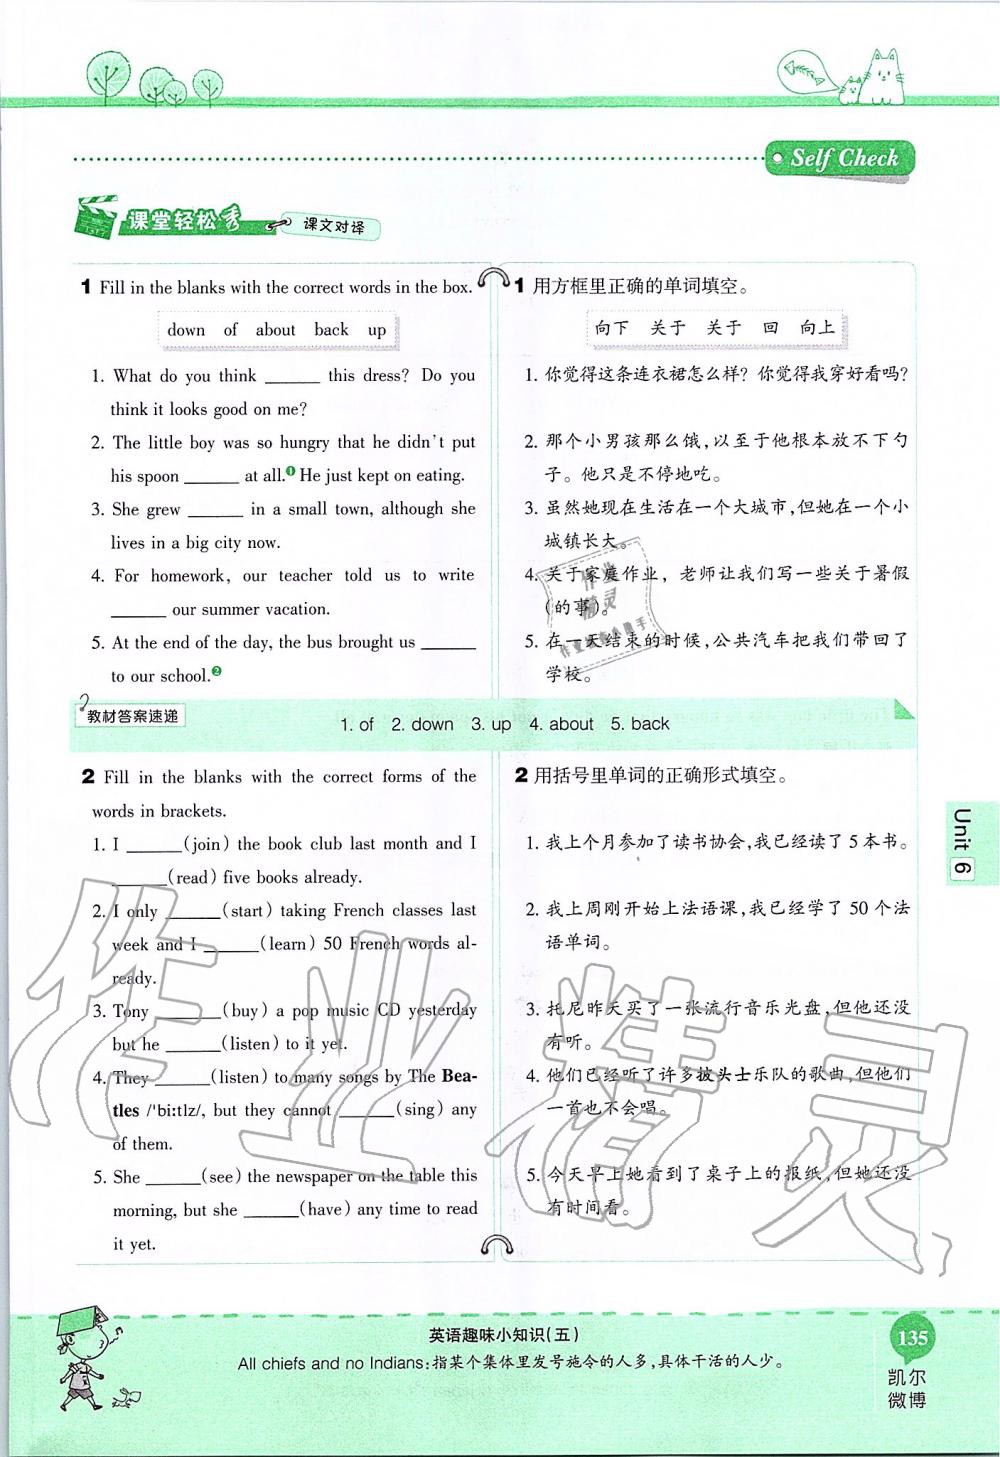 Self Check
课堂轻松秀 课文对译
1 Fill in the blanks with the correct words in the box.
down of about back up
1. What do you think ______ this dress? Do you
think it looks good on me?
2. The little boy was so hungry that he didn't put
his spoon ______ at all.❶ He just kept on eating.
3. She grew ______ in a small town, although she
lives in a big city now.
4. For homework, our teacher told us to write
______ our summer vacation.
5. At the end of the day, the bus brought us ______
to our school.❷
1 用方框里正确的单词填空。
向下 关于 关于 回 向上
1. 你觉得这条连衣裙怎么样? 你觉得我穿好看吗?
2. 那个小男孩那么饿,以至于他根本放不下勺
子。他只是不停地吃。
3. 虽然她现在生活在一个大城市,但她在一个小
城镇长大。
4. 关于家庭作业，老师让我们写一些关于暑假
(的事)。
5. 在一天结束的时候,公共汽车把我们带回了
学校。
教材答案速递
1. of 2. down 3. up 4. about 5. back
2 Fill in the blanks with the correct forms of the
words in brackets.
1. I ______(join) the book club last month and I
______(read) five books already.
2. I only ______(start) taking French classes last
week and I ______(learn) 50 French words al-
ready.
3. Tony ______(buy) a pop music CD yesterday
but he ______(listen) to it yet.
4. They ______(listen) to many songs by The Bea-
tles /'bi:tlz/, but they cannot ______(sing) any
of them.
5. She ______(see) the newspaper on the table this
morning, but she ______(have) any time to read
it yet.
2 用括号里单词的正确形式填空。
1. 我上个月参加了读书协会,我已经读了 5 本书。
2. 我上周刚开始上法语课,我已经学了 50 个法
语单词。
3. 托尼昨天买了一张流行音乐光盘,但他还没
有听。
4. 他们已经听了许多披头士乐队的歌曲,但他们
一首也不会唱。
5. 今天早上她看到了桌子上的报纸,但她还没
有时间看。
Unit 6
作业精灵
英语趣味小知识(五)
All chiefs and no Indians:指某个集体里发号施令的人多,具体干活的人少。
135
凯尔
微博